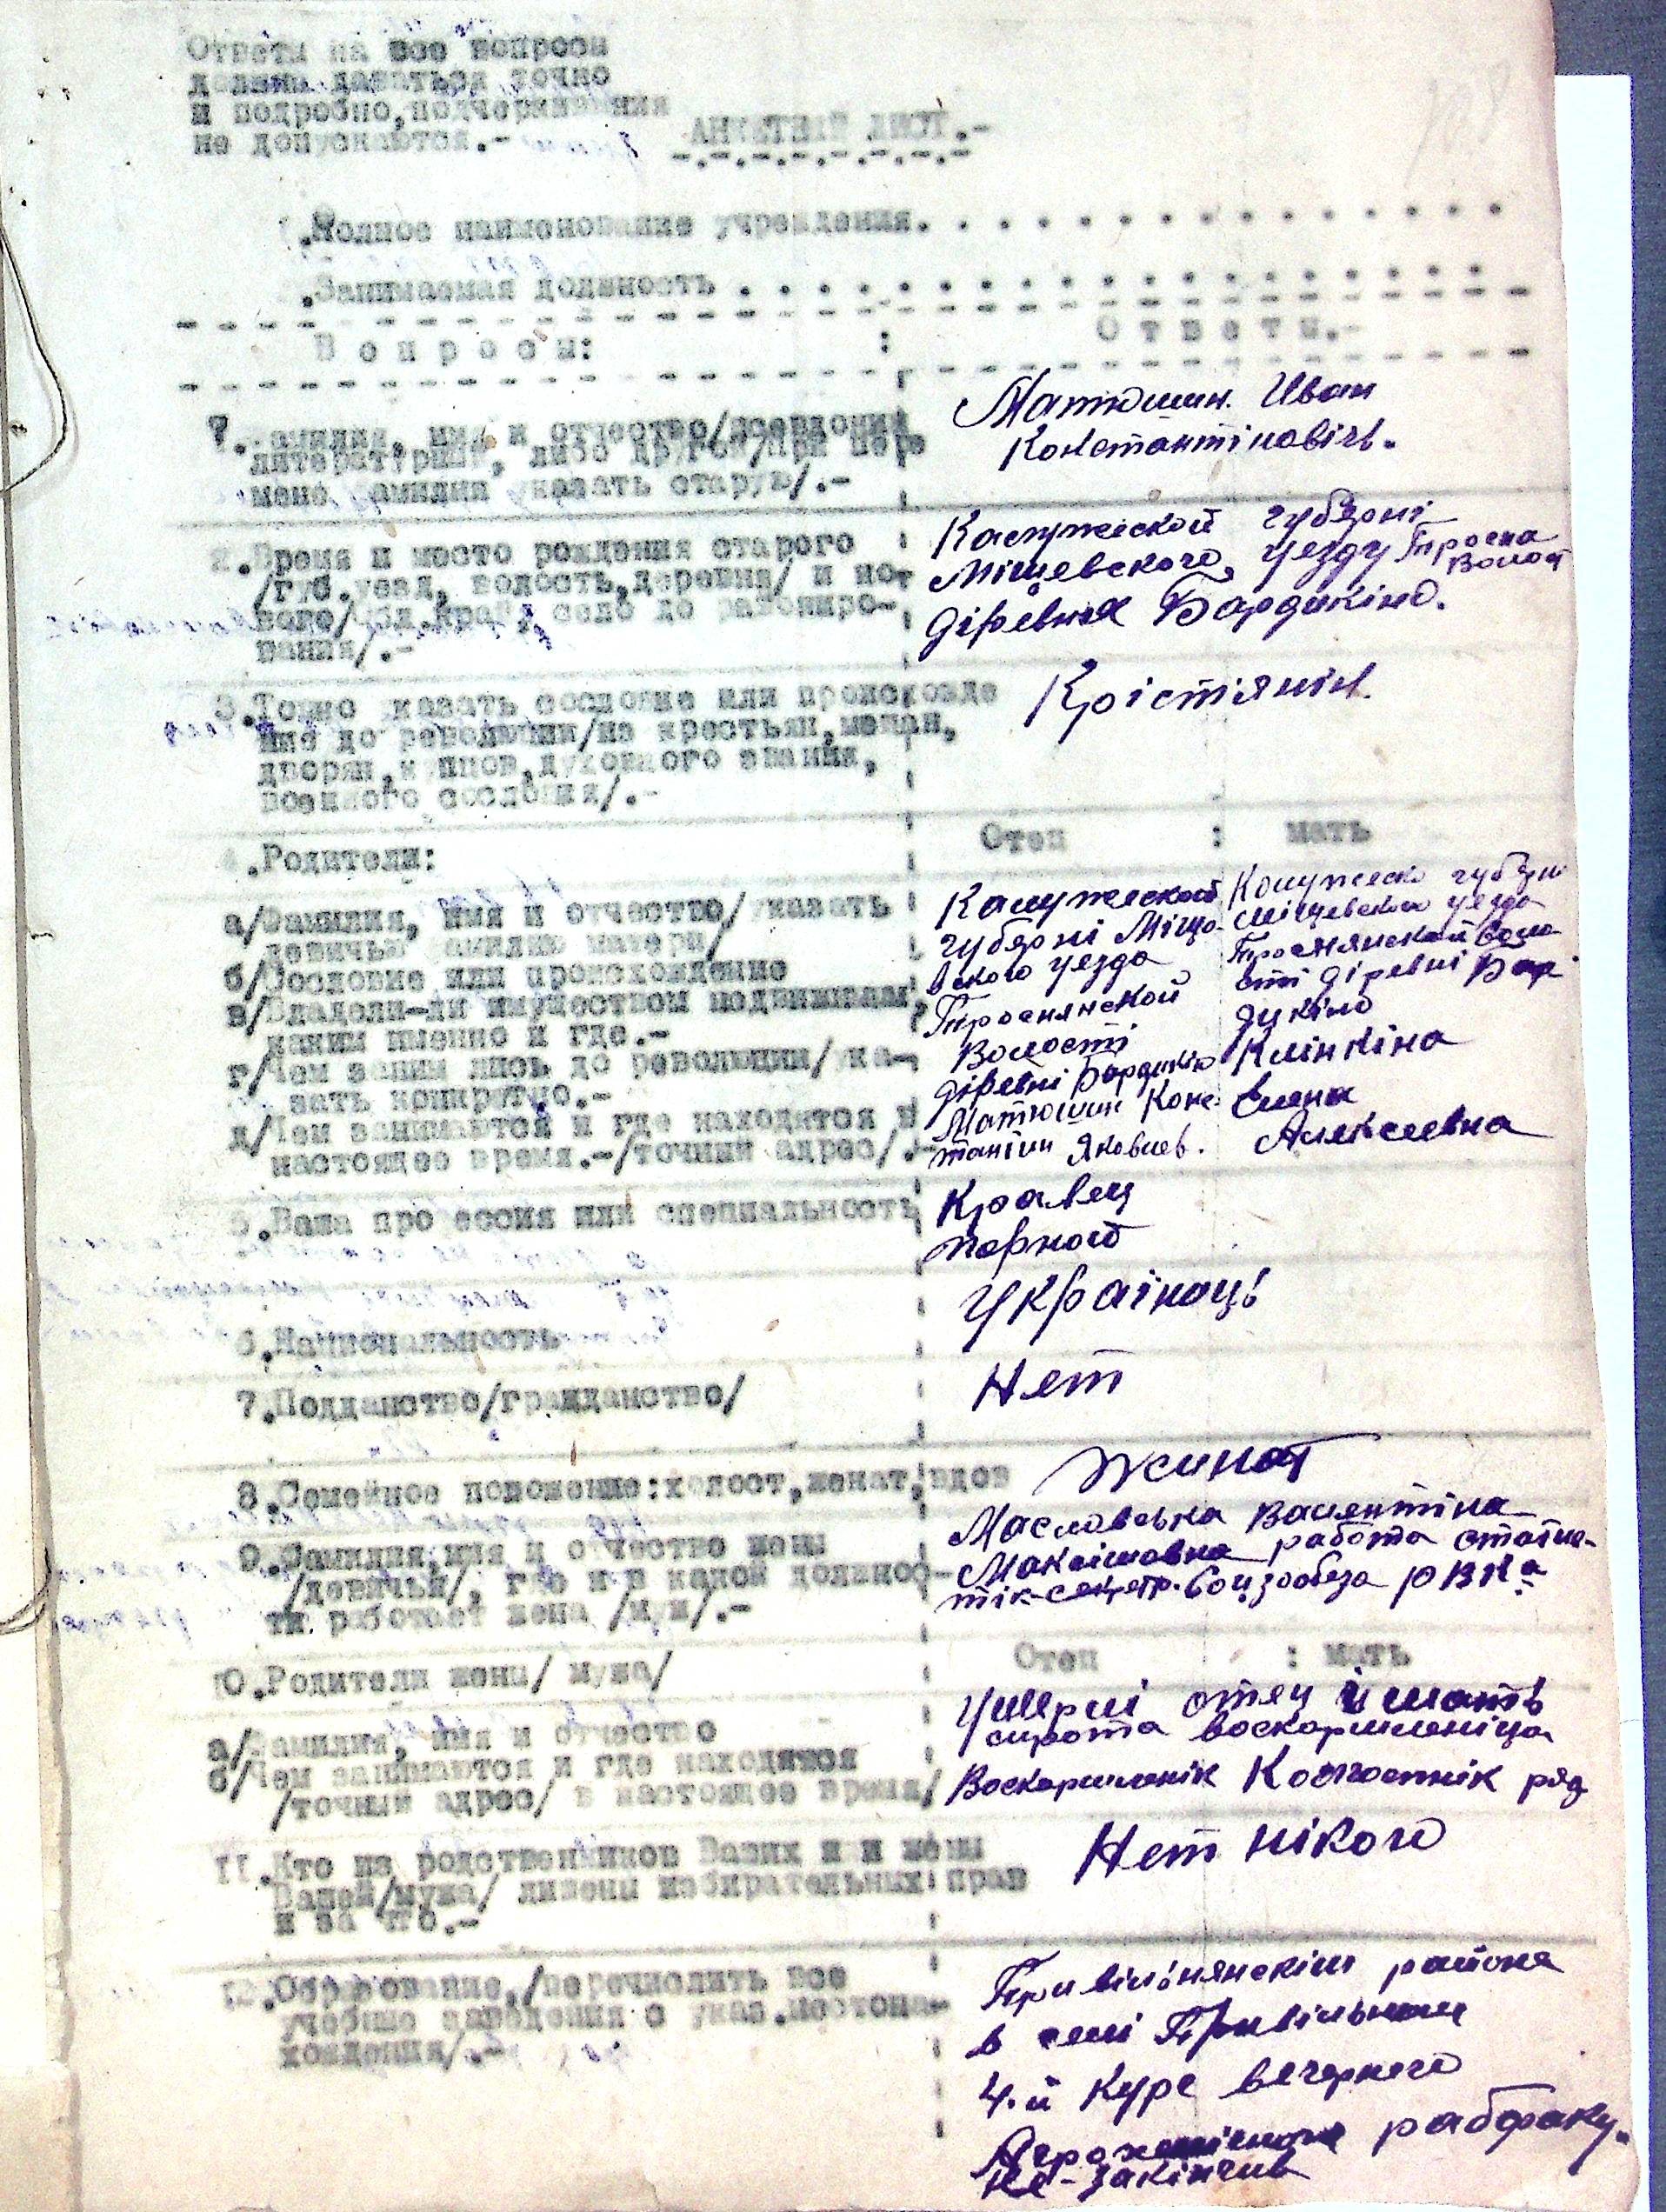 Ответы на все вопросы
должны даваться точно
и подробно, подчеркивания
не допускаются.-
АНКЕТНЫЙ ЛИСТ.-
Полное наименование учреждения. . . . . . . . . . . . . .
.Занимаемая должность . . . . . . . . . . . . . . .
В о п р о с ы: : О т в е т ы.-
?.Фамилия, имя и отчество/псевдоним
литературный, либо другой/при пере
мене фамилии указать старую/.-
Матюшин. Иван
Константіновічь.
2.Время и место рождения старого
/губ.уезд, волость,деревня/ и но-
вого/обл.край, село до райониро-
вания/.-
Калужеской губэрні
Міщевского, уезду Тросна
Волост
діревня Бардукіно.
3.Точно указать сословие или происхожде
ние до революции/из крестьян,мещан,
дворян,купцов,духовного звания,
военного сословия/.-
Крістіянін.
4.Родители:
Отец : мать
а/Фамилия, имя и отчество/указать
девичью фамилию матери/
б/Сословие или происхождение
в/Владели-ли имуществом недвижимым,
каким именно и где.-
г/Чем занимались до революции/ука-
зать конкретно.-
д/Чем занимаются и где находятся в
настоящее время.-/точный адрес/.-
Калужеской
губэрні Міще-
вского уезда
Троснянской
Волості
діревні Бардукіно
Матюшин Конс-
тантин Яковлев.
Калужеско губэрні
Міщевском уезда
Троснянской воло
сті діревні Бар
дукіно
Клінкіна
Елена
Алексеевна
5.Ваша профессия или специальность
Кравец
портной
6.Национальность
Українець
7.Подданство/гражданство/
Нет
8.Семейное положение:холост,женат,вдов
Жинат
9.Фамилия,имя и отчество жены
/девичья/, где и в какой должнос-
ти работает жена /муж/.-
Масловська Валентіна
Максімовна работа статис-
тік-секретр. Соцзообеза РВКа
10.Родители жены/ мужа/
Отец : мать
а/Фамилия, имя и отчество
б/Чем занимаются и где находятся
/точный адрес/ в настоящее время/
Умерлі отец и мать
сирота воскормленіца
Воскормленік Колгоспнік ряд
11.Кто из родственников Ваших или жены
Вашей/мужа/ лишены избирательных прав
и за что.-
Нет нікого
12.Образование,/перечислить все
учебные заведения с указ.местона-
хождения/.-
Привільнянскім района
в селі Привільном
4.й Курс вечернего
рабфаку.
не-закінчив